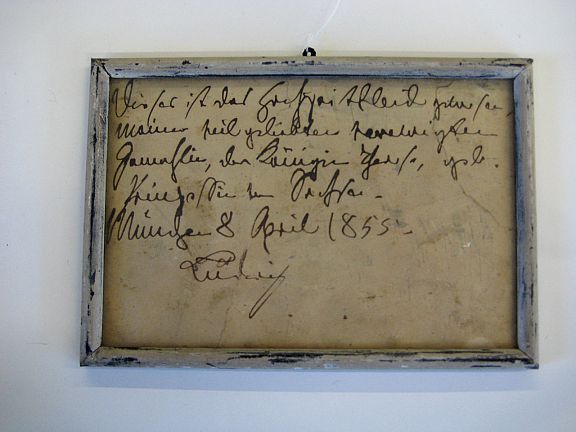 Dieses ist das Hochzeitkleid gewesen,
meiner vielgeliebten verewigten
Gemahlin, der Königin Therese, geb.
Prinzessin von Sachsen.
München 8 April 1855.
Ludwig